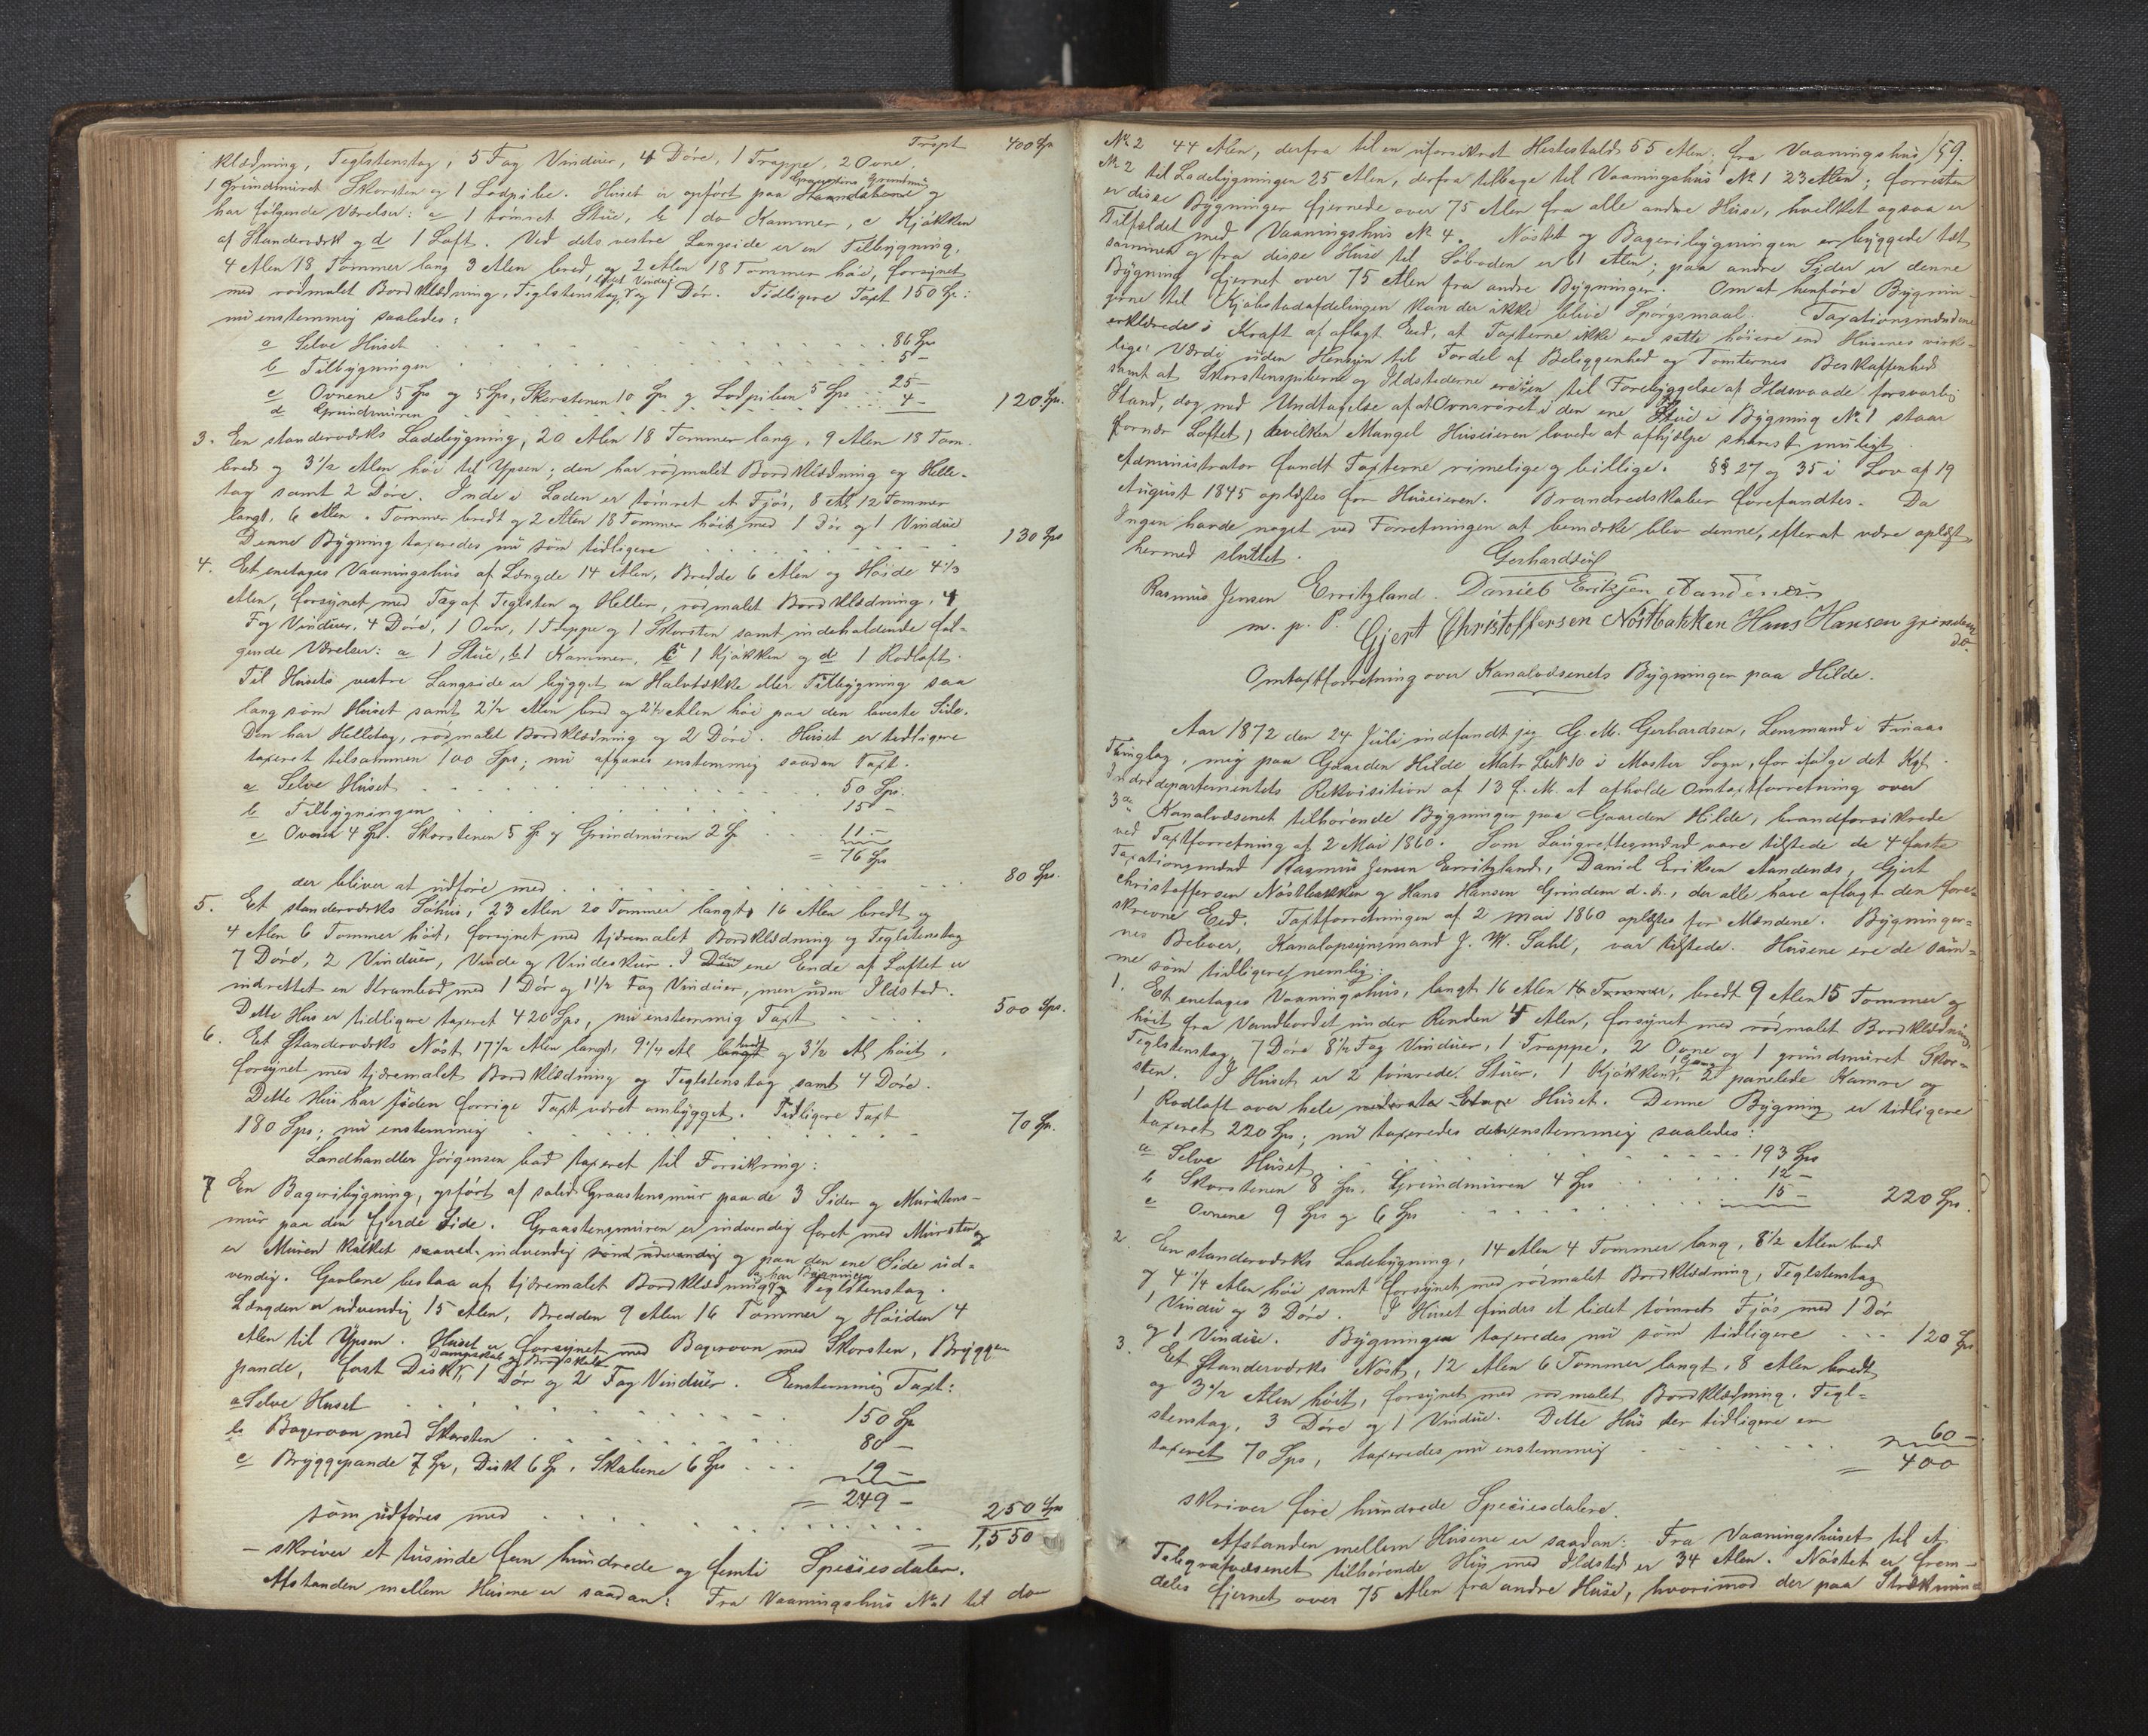 Trspt 400 Sp
klædning, Teglstenstag, 5 Fag Vinduer, 4 Döre, 1 Trappe, 2 Ovne,
1 Grundmuret Skorsten og 1 Lodpibe. Huset er opfört paa Graastens Grundmur og
har fölgende Værelser: a 1 tömret Stue, b 1 do Kammer, c Kjökken
af Standerværk og d 1 Loft. Ved dets vestre Langside er en Tilbygning,
4 Alen 18 Tommer lang 3 Alen bred og 2 Alen 18 Tommer höi, forsynet
med rödmalet Bordklædning, Teglstenstag, 1 Vindu og 1 Dör. Tidligere Taxt 150 Sp:
nu enstemmig saaledes:
a Selve Huset 86 Sp
b Tilbygningen 5 -
c Ovnene 5 Sp og 5 Sp, Skorstenen 10 Sp og Lodpiben 5 Sp 25 -
d Grundmuren 4 - 120 Sp.
3. En standerværks Ladebygning, 20 Alen 18 Tommer lang, 9 Alen 18 Tom.
bred og 3 1/2 Alen höi til Ypsen; den har rödmalet Bordklædning og Helle-
tag samt 2 Döre. Inde i Laden er tömret et Fjös, 8 Al 12 Tommer
langt, 6 Alen Tommer bredt og 2 Alen 18 Tommer höit med 1 Dör og 1 Vindue
Denne Bygning taxeredes nu som tidligere 130 Sp
4. Et enetages Vaaningshus af Længde 14 Alen, Bredde 6 Alen og Höide 4 1/3
Alen, forsynet med Tag af Teglsten og Heller, rödmalet Bordklædning, 4
Fag Vinduer, 4 Döre, 1 Ovn, 1 Trappe og 1 Skorsten samt indeholdende föl-
gende Værelser: a 1 Stue, b 1 Kammer, c 1 Kjökken og d 1 Rodloft.
Til Husets vestre Langside er bygget en Halvtække eller Tilbygning saa
lang som Huset samt 2 1/2 Alen bred og 2 1/2 Alen höi paa den laveste Side.
Den har Helletag, rödmalet Bordklædning og 2 Döre. Huset er tidligere
taxeret tilsammen 100 Sps; nu afgaves enstemmig saadan Taxt.
a Selve Huset 50 Sps.
b Tilbygningen 15 -
c Ovnen 4 Sp. Skorstenen 5 Sp og Grundmuren 2 Sp 11 -
= 76 Sps
der bliver at udföre med 80 Sps.
5. Et standerværks Söhus, 23 Alen 20 Tommer langt, 16 Alen bredt og
4 Alen 6 Tommer höit, forsynet med tjæremalet Bordklædning og Teglstenstag
7 Döre, 2 Vinduer, Vinde og Vindeskur. I den ene Ende af Loftet er
indrettet en Krambod med 1 Dör og 1 1/2 Fag Vinduer, men uden Ildsted.
Dette Hus er tidligere taxeret 420 Sps, nu enstemmig Taxt 500 Sps.
6. Et Standerværks Nöst 17 1/2 Alen langt, 9 1/4 Al bredt og 3 1/2 Al höit,
forsynet med tjæremalet Bordklædning og Teglstenstag samt 4 Döre.
Dette Hus har siden forrige Taxt været ombygget. Tidligere Taxt
180 Sps; nu enstemmig 70 Sp.
Landhandler Jörgensen bad taxeret til Forsikring:
7 En Bageribygning, opfört af solid Graastensmur paa de 3 Sider og Murstens-
mur paa den fjerde Side. Graastensmuren er indvendig foret med Mursten og
er Muren kalket saavel indvendig som udvendig og paa den ene Side ud-
vendig. Gavlene bestaa af tjæremalet Bordklædning og har Bygningen Teglstenstag.
Længden er udvendig 15 Alen, Bredden 9 Alen 16 Tommer og Höiden 4
Alen til Ypsen. Huset er forsynet med Bagerovn med Skorsten, Brygge-
pande, fast Disk, Dampskab og Brödskab 1 Dör og 2 Fag Vinduer. Enstemmig Taxt:
a Selve Huset 150 Sp
b Bagerovn med Skorsten 80 -
c Bryggepande 7 Sp, Disk 6 Sp, Skabene 6 Sps 19 -
= 249 -
som udföres med 250 Sps
= 1,550
- skriver et tusinde fem hundrede og femti Speciesdaler.
Afstanden mellem Husene er saadan: Fra Vaaningshus No 1 til do
59.
No 2 44 Alen, derfra til en uforsikret Hestestald 55 Alen; fra Vaaningshus
No 2 til Ladebygningen 25 Alen, derfra tilbage til Vaaningshus No 1 23 Alen; forresten
er disse Bygninger fjernede over 75 Alen fra alle andre Huse, hvilket ogsaa er
Tilfældet med Vaaningshus No 4. Nöstet og Bageribygningen er byggede tæt
sammen og fra disse Huse til Söboden er 61 Alen; paa andre Sider er denne
Bygning fjernet over 75 Alen fra andre Bygninger. Om at henföre Bygnin-
gerne til Kjöbstadafdelingen kan der ikke blive Spörgsmaal. Taxationsmændene
erklærede i Kraft af aflagt Eed, at Taxterne ikke ere satte höiere end Husenes virke-
lige Værdi uden Hensyn til Fordel af Beliggenhed og Tomternes Beskaffenhed
samt at Skorstenspiberne og Ildstederne ere i en til Forebyggelse af Ildsvaade forsvarlig
Stand, dog med Undtagelse af at Ovnsröret i den ene Stue i Bygning No 1 staar
fornær Loftet, hvilken Mangel Huseieren lovede at afhjælpe snarest muligt.
Administrator fandt Taxterne rimelige og billige. §§ 27 og 35 i Lov af 19
August 1845 oplæstes for Huseieren. Brandredskaber forefandtes. Da
Ingen havde noget ved Forretningen at bemærke blev denne, efter at være oplæst
hermed sluttet.
Gerhardsen
Rasmus Jensen Erritzland. Daniel Eriksen Aandenes
m. p. P. Gjert Christoffersen Nöstbakken Hans Hansen grindem
do.
Omtaxtforretning over Kanalvæsenets Bygninger paa Hilde.
Aar 1872 den 24 Juli indfandt jeg G. M. Gerhardsen, Lensmand i Finaas
Thinglag, mig paa Gaarden Hilde Matr. Lb No 10 i Moster Sogn, for ifölge det Kgl.
Indredepartementets Rekvisition af 13 f. M. at afholde Omtaxtforretning over
3de Kanalvæsenet tilhörende Bygninger paa Gaarden Hilde, brandforsikrede
ved Taxtforretning af 2 Mai 1860. Som Laugrettesmænd vare tilstede de 4 faste
Taxationsmænd Rasmus Jensen Erritzland, Daniel Eriksen Aandenes, Gjert
Christoffersen Nöstbakken og Hans Hansen Grindem d. æ., der alle have aflagt den fore-
skrevne Eed. Taxtforretningen af 2 Mai 1860 oplæstes for Mændene. Bygninger-
nes Beboer, Kanalopsynsmand J. W. Sahl, var tilstede. Husene ere de sam-
me som tidligere, nemlig:
1. Et enetages Vaaningshus, langt 16 Alen 16 Tommer, bredt 9 Alen 15 Tommer og
höit fra Vandbordet under Renden 4 Alen, forsynet med rödmalet Bordklædning
Teglstenstag, 7 Döre 8 1/2 Fag Vinduer, 1 Trappe, 2 Ovne og 1 grundmuret Skor-
sten. I Huset er 2 tömrede Stuer, 1 Kjökken, 1 Gang 2 panelede Kamre og
1 Rodloft over hele Huset. Denne Bygning er tidligere
taxeret 220 Sps; nu taxeredes den enstemmig saaledes:
a Selve Huset 193 Sps
b Skorstenen 8 Sp. Grundmuren 4 Sps 12 -
c Ovnene 9 Sps og 6 Sps 15 - 220 Sps.
2. En standerværks Ladebygning, 14 Alen 4 Tommer lang, 8 1/2 Alen bred
og 4 1/4 Alen höi samt forsynet med rödmalet Bordklædning, Teglstenstag
1 Vindu og 3 Döre. I Huset findes et lidet tömret Fjös med 1 Dör
og 1 Vindue. Bygningen taxeredes nu som tidligere 120 Sps
3. Et Standerværks Nöst, 12 Alen 6 Tommer langt, 8 Alen bredt
og 3 1/2 Alen höit, forsynet med rödmalet Bordklædning, Tegl-
stenstag, 3 Döre og 1 Vindue. Dette Hus der tidligere er
taxeret 70 Sps, taxeredes nu enstemmig 60 -
= 400
skriver fire hundrede Speciesdalere.
Afstanden mellem Husene er saadan: Fra Vaaningshuset til et
Telegrafvæsenet tilhörende Hus med Ildsted er 34 Alen. Nöstet er frem-
deles fjernet over 75 Alen fra andre Huse, hvorimod der paa